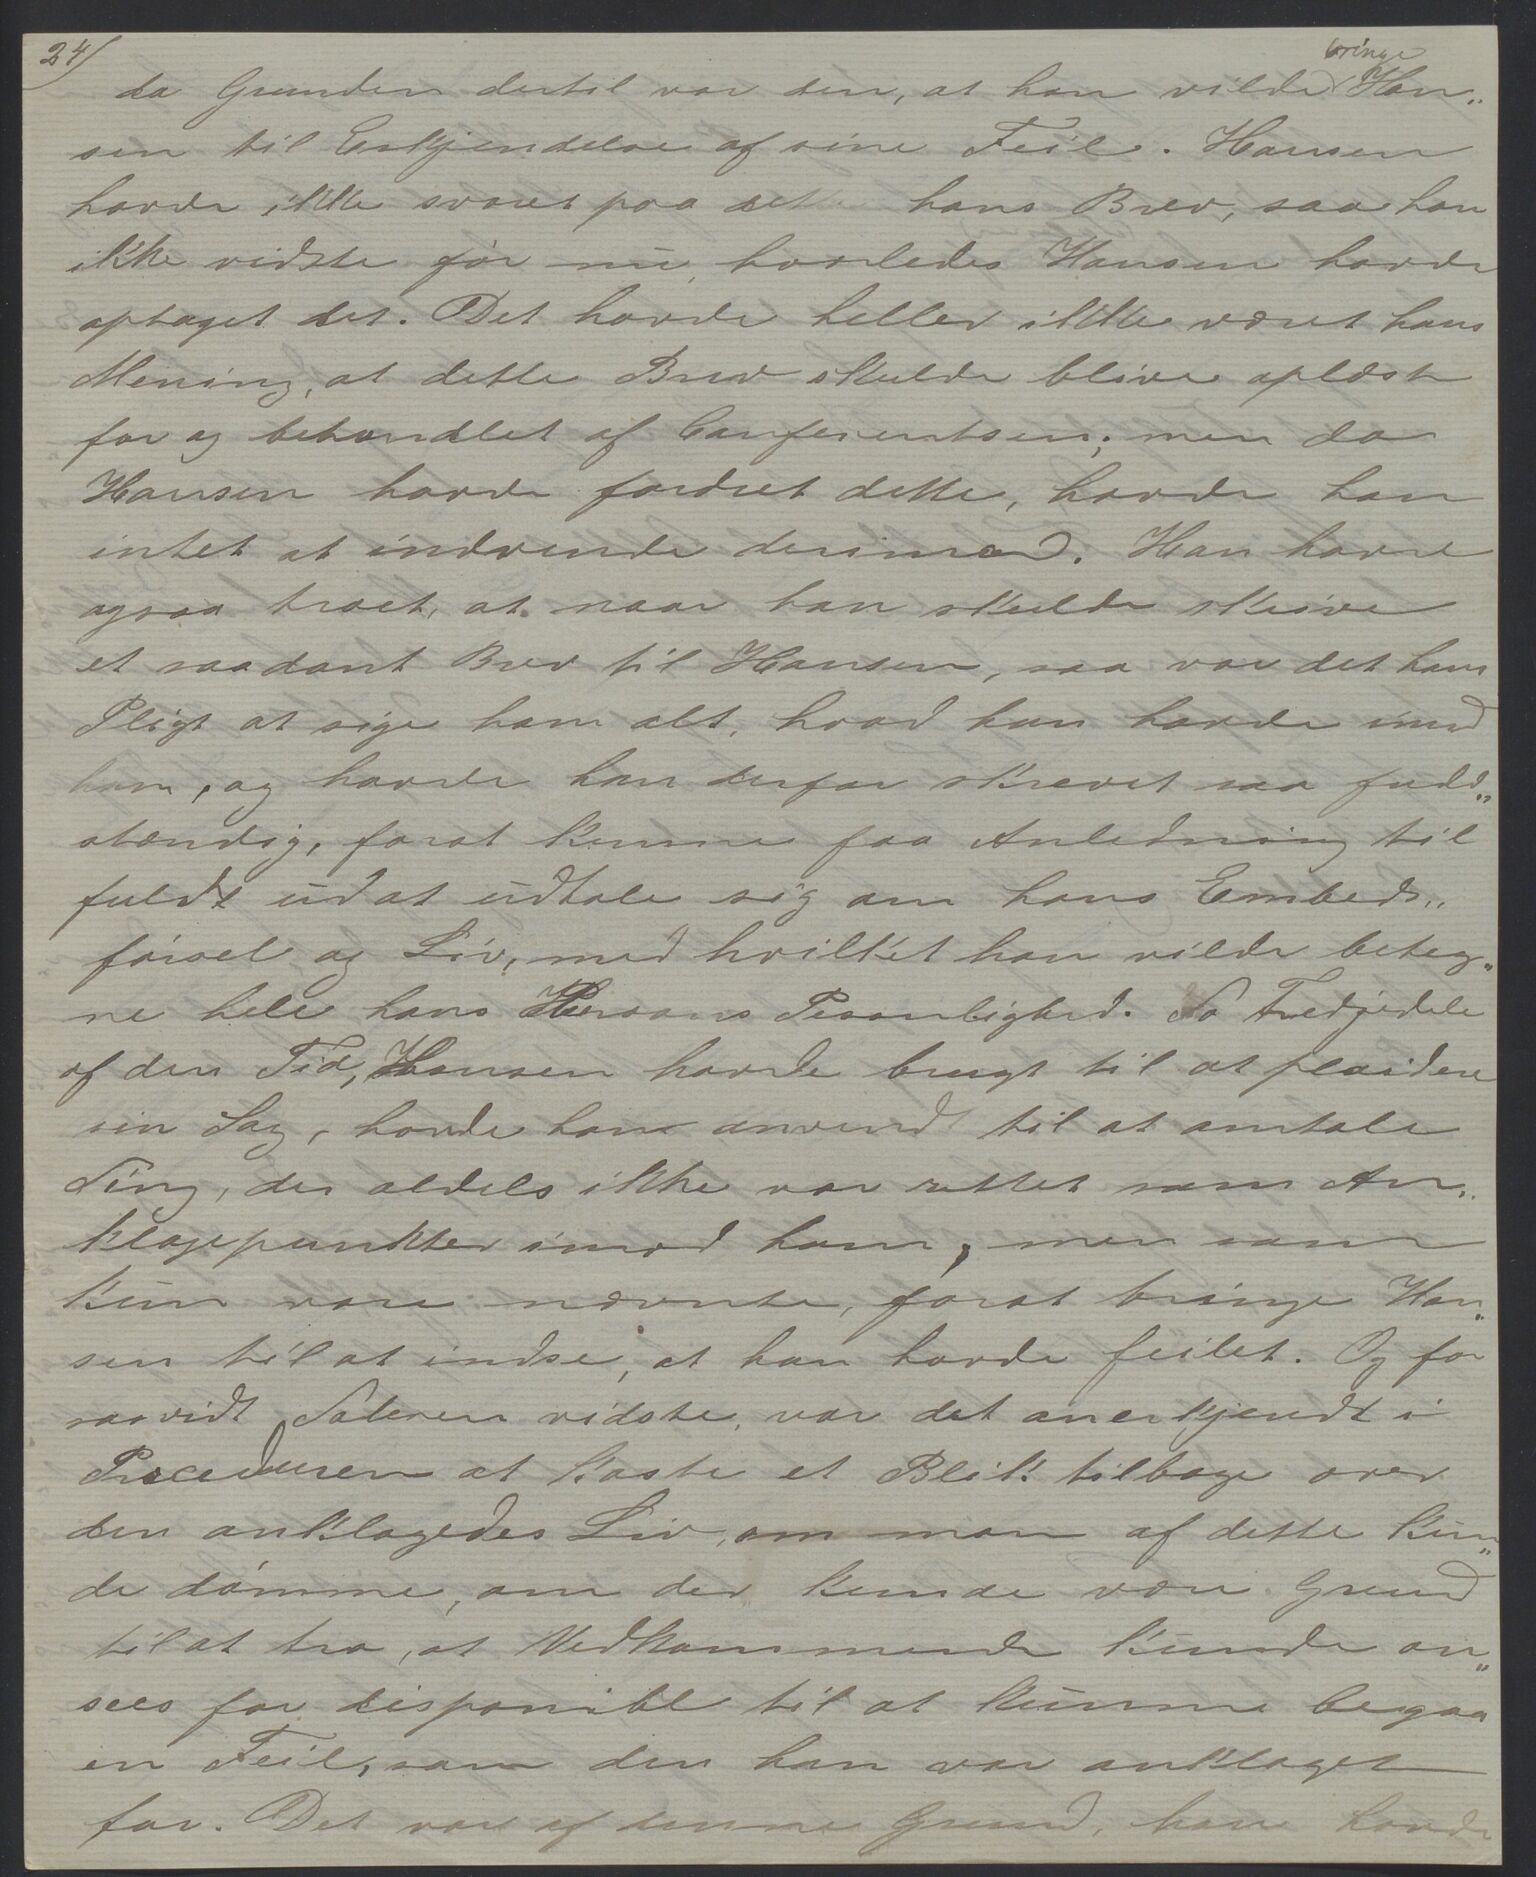 24/
da Grunden dertil var den, at han vilde bringe Han„
sen til Erkjendelse af sine Feil. Hansen
havde ikke svaret paa det hans Brev, saa han
ikke vidste før nu, hvorledes Hansen havde
optaget det. Det havde heller ikke været hans
Mening, at dette Brev skulde blive oplæst
for og behandlet af Conferentsen; men da
Hansen havde fordret dette, havde han
intet at indvende derimod. Han havde
ogsaa troet, at naar han skulde skrive
et saadant Brev til Hansen, saa var det hans
Pligt at sige ham alt, hvad han havde imod
ham, og havde han derfor skrevet saa fuld„
stændig, forat kunne faa Anledning til
fuldt ud at udtale sig om hans Embeds„
førsel og Liv, med hvilket han vilde beteg„
ne hele hans Persons Pesonlighed. To Tredjedele
af den Tid, Hansen havde brugt til at plaidere
sin Sag, havde han anvendt til at omtale
Ting, der aldels ikke var rettet som An„
klagepunkter imod ham, men som
kun vare nævnte, forat bringe Han„
sen til at indse, at han havde feilet. Og for
saavidt Taleren vidste, var det anerkjendt i
Proceduren at kaste et Blik tilbage over
den anklagedes Liv, om man af dette kun„
de dømme, om der kunde være Grund
til at tro, at Vedkommende kunde an„
sees for disponibl til at kunne begaa
en Feil, som den han var anklaget
for. Det var af denne Grund, han havde